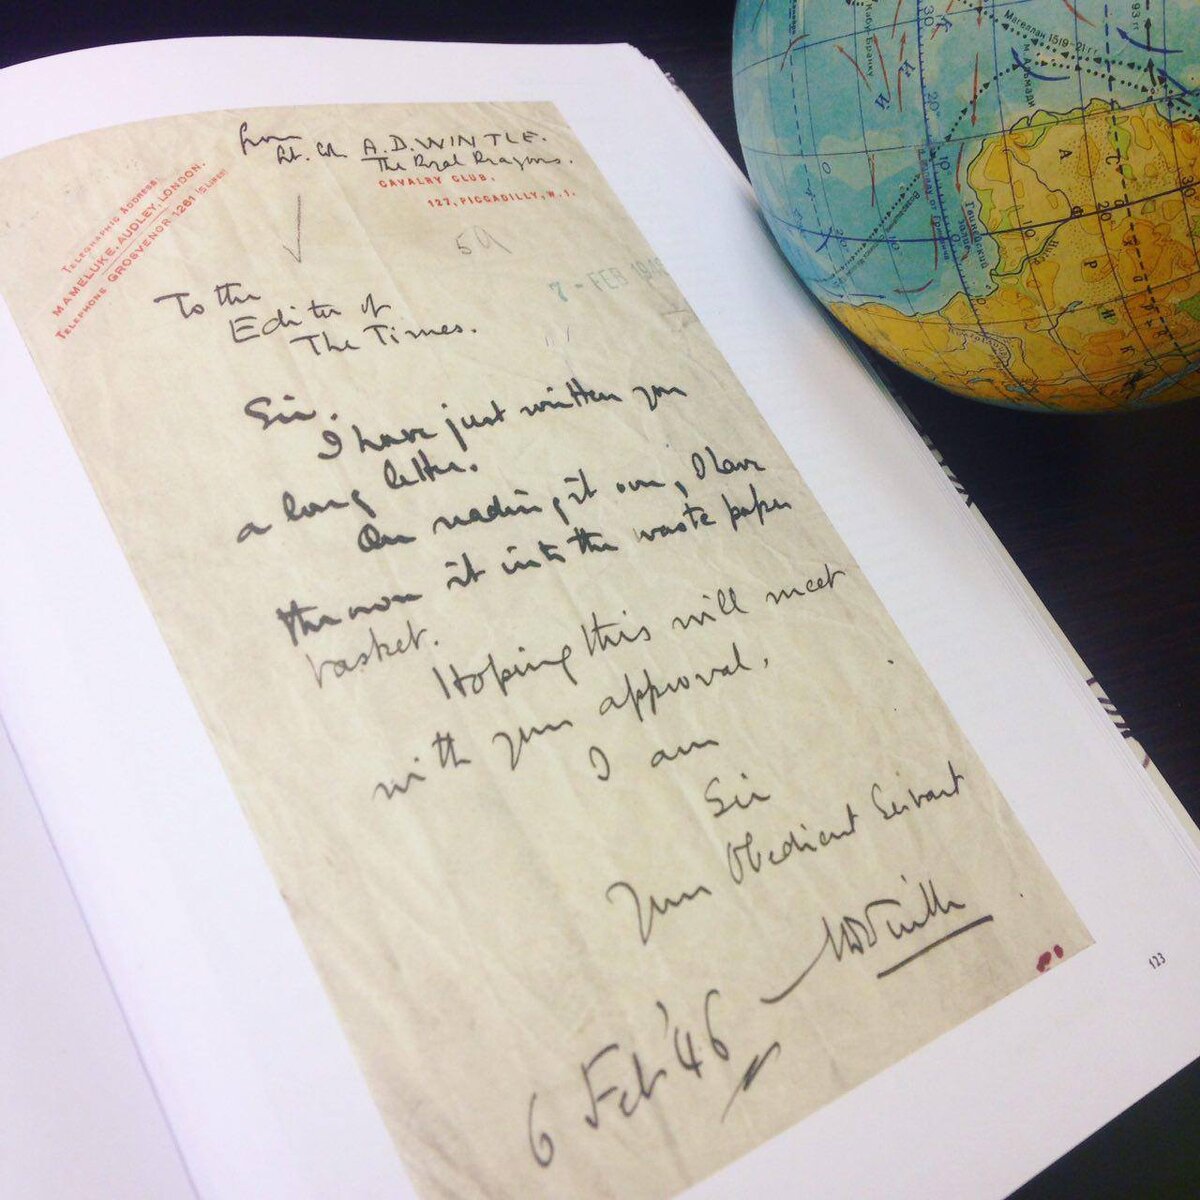 from
Lt. Col A.D. WINTLE.
The Royal Dragoons.
CAVALRY CLUB,
127, PICCADILLY, W.1.
TELEGRAPHIC ADDRESS:
MAMELUKE, AUDLEY, LONDON.
TELEPHONE GROSVENOR 1261
59
7 - FEB 1946
To the
Editor of
The Times.
Sir.
I have just written you
a long letter.
On reading it over, I have
thrown it into the waste paper
basket.
Hoping this will meet
with your approval,
I am
Sir
Your Obedient Servant
ADWintle
6 Feb '46
123
Магеллан 1519-21 гг.
30
20
10
0
10
20
А
Ф
Р
И